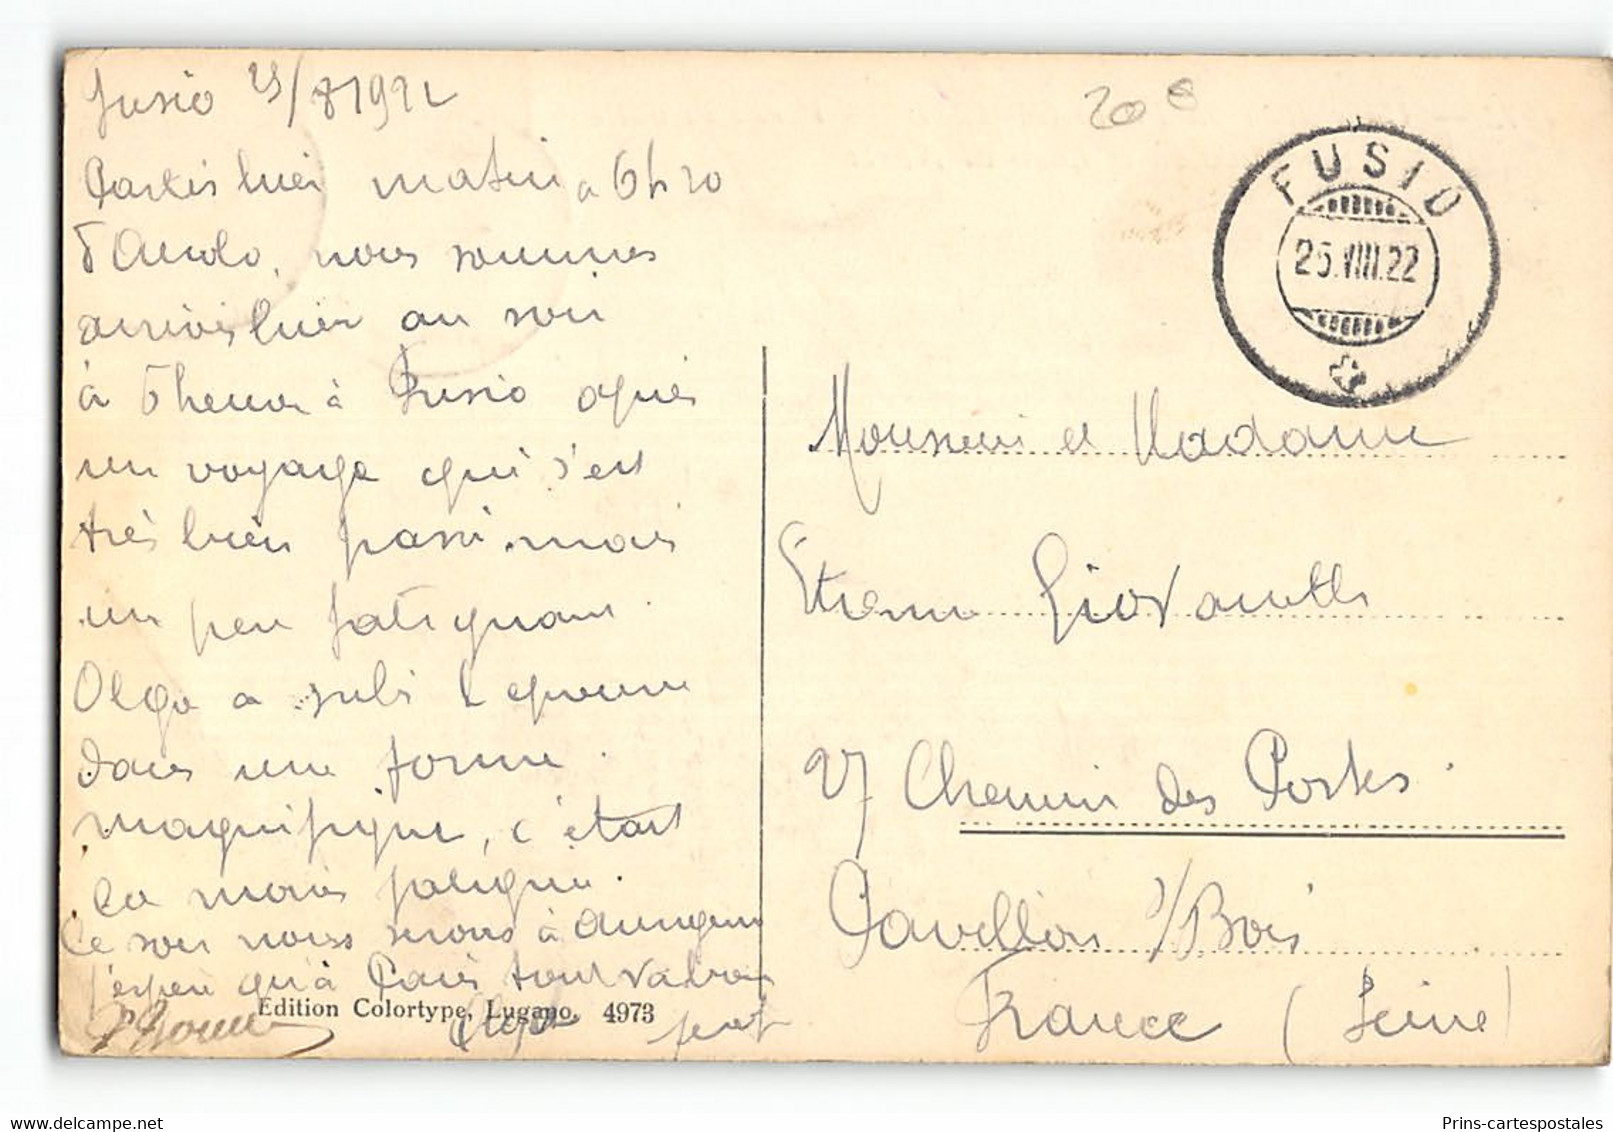 Fusio 25/8 1922
Partis hier matin à 6h20
d'Airolo, nous sommes
arrivés hier au soir
à 5 heures à Fusio après
un voyage qui s'est
très bien passé mais
un peu fatiguant.
Olga a subi l'épreuve
dans une forme
magnifique, c'était
la moins fatiguée.
Ce soir nous serons à
j'espère qu'à Paris tout va bien
Olga
Edition Colortype, Lugano, 4973
20 e
FUSIO
25.VIII.22
Monsieur et Madame
Etienne Giovanetti
27 Chemin des Postes
Pavillons s/Bois
France (Seine)
Prins-cartespostales